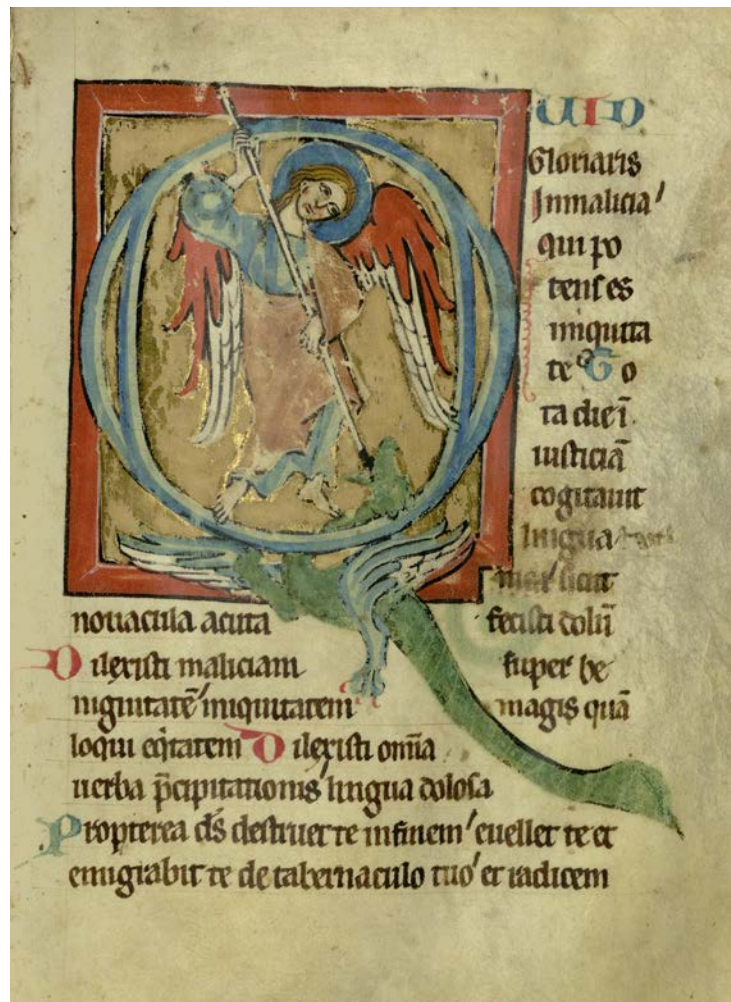 QUID
Gloriaris
Inmalicia
qui po
tens es
iniquita
te To
ta die ī
iusticiā
cogitauit
lingua tua
sicut
nouacula acuta fecisti dolū
Dilexisti maliciam super be
nignitatē iniquitatem magis quā
loqui eq̄tatem Dilexisti om̄ia
uerba p̄cipitationis lingua dolosa
Propterea ds̄ destruet te infinem euellet te et
emigrabit te de tabernaculo tuo et radicem